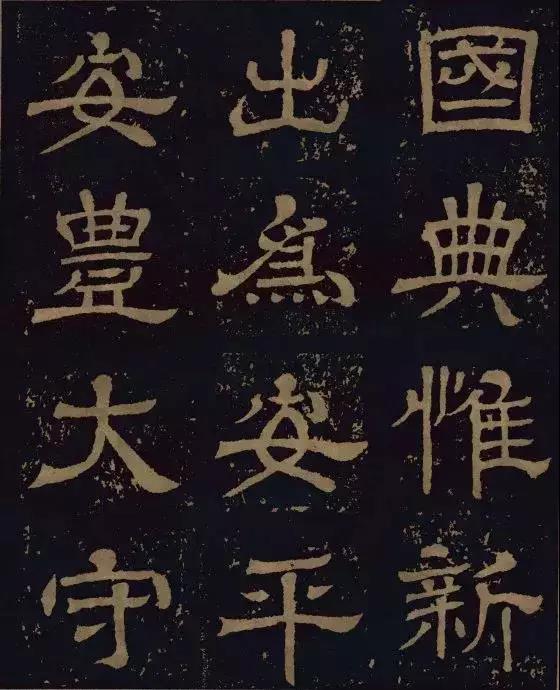 國典惟新
出為安平
安豊大守